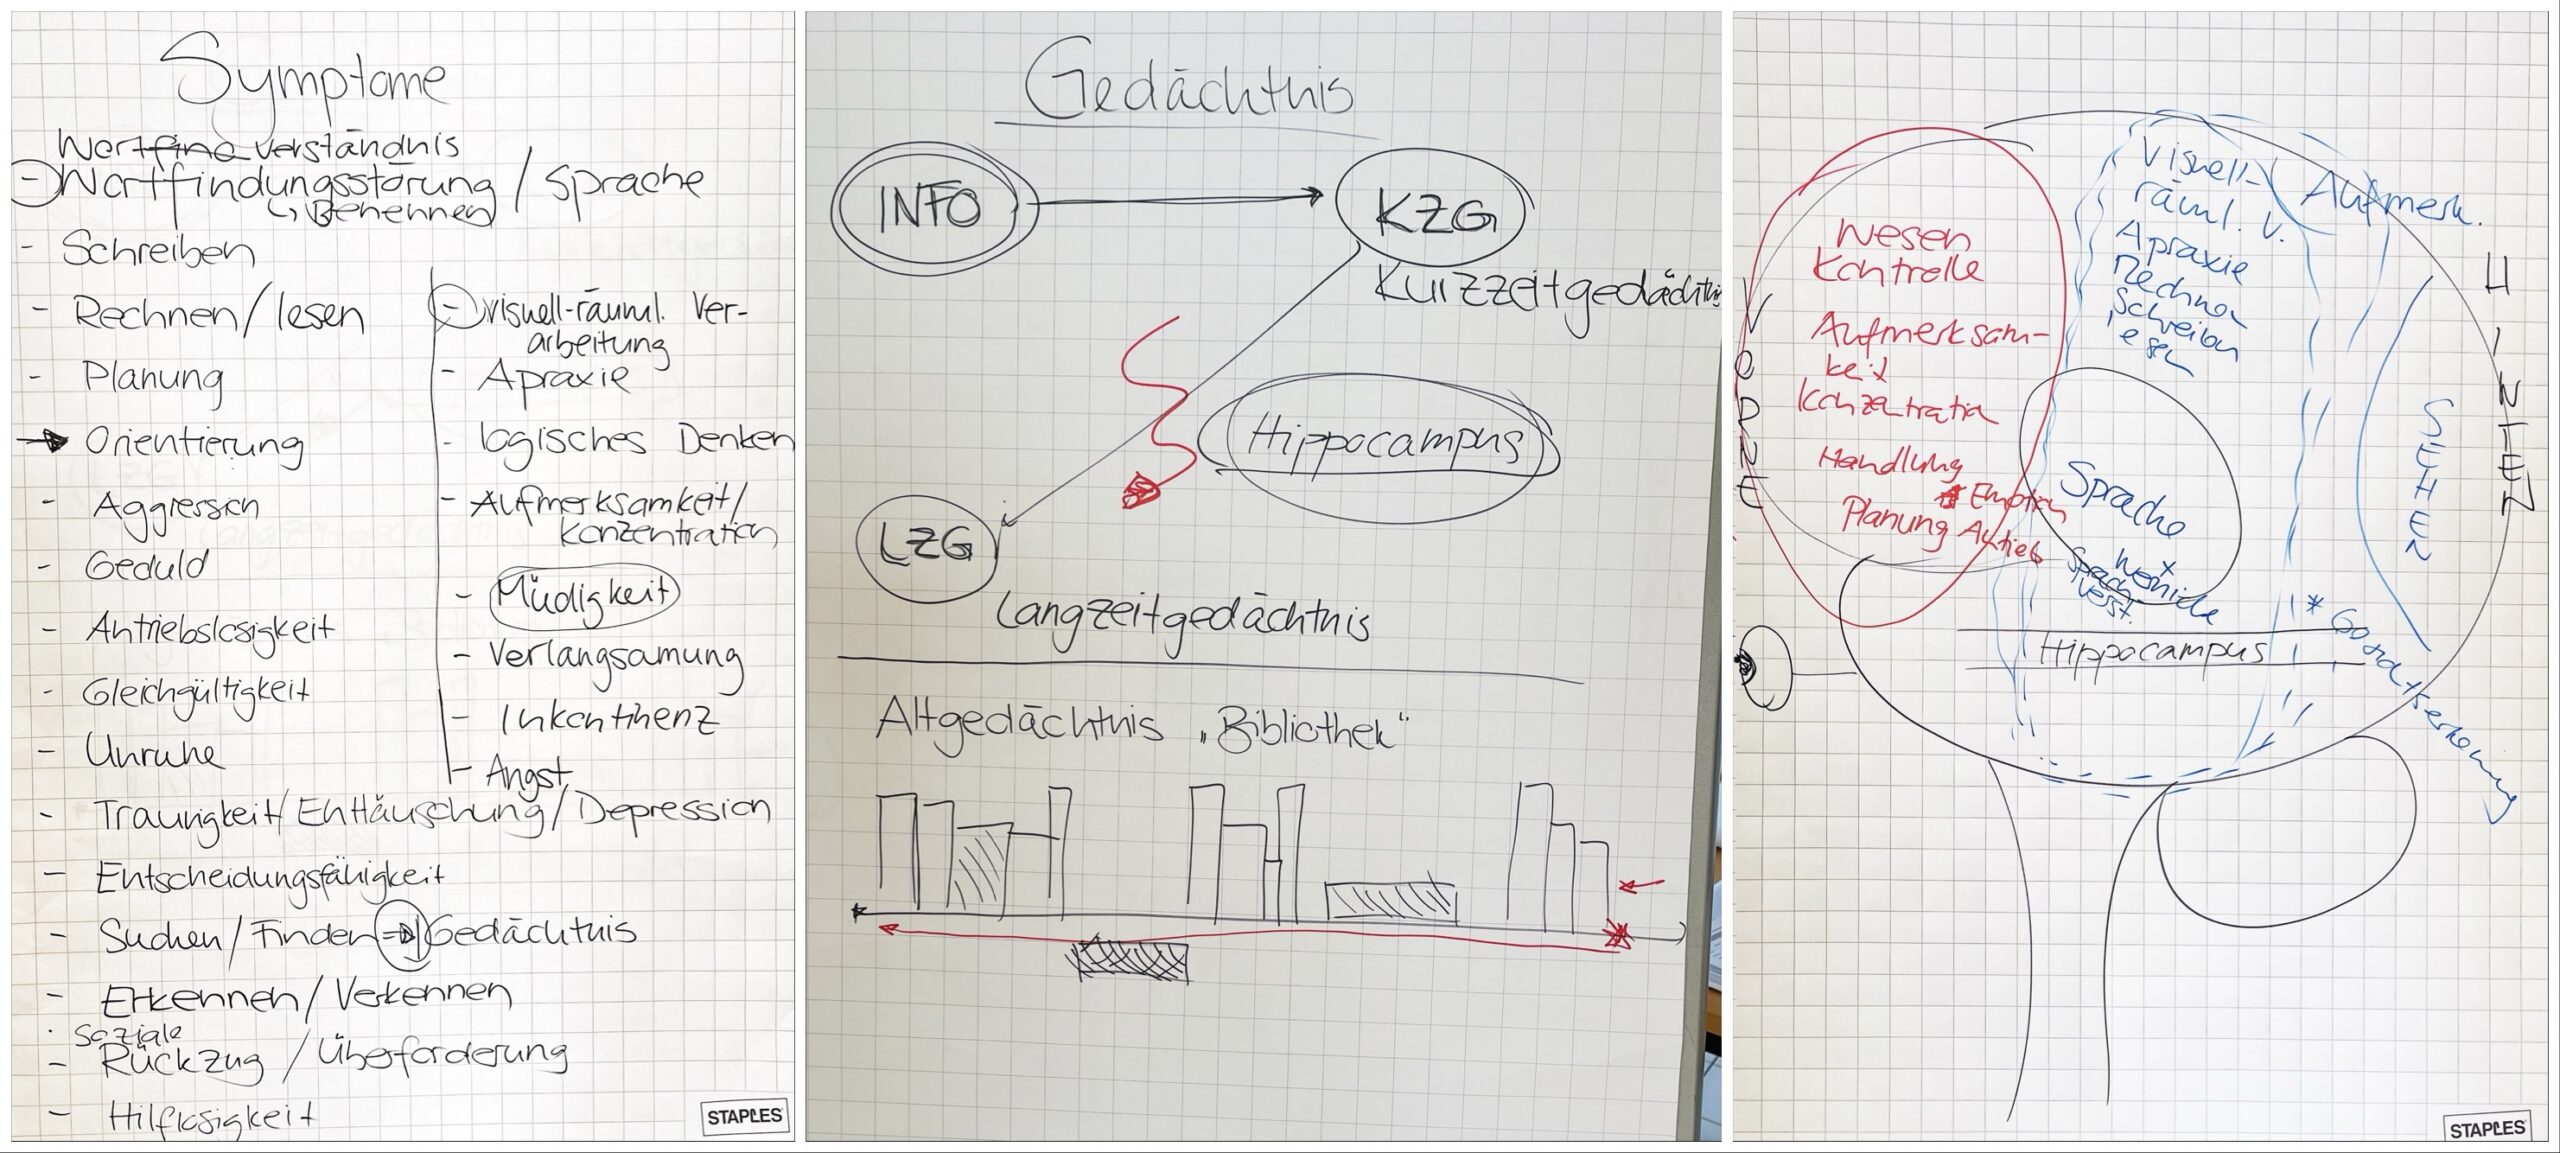 Symptome
Wortfine verständnis
- Wortfindungsstörung / Sprache
↳ Benennen
- Schreiben
- Rechnen/lesen
- Planung
→ Orientierung
- Aggression
- Geduld
- Antriebslosigkeit
- Gleichgültigkeit
- Unruhe
- visuell-räuml. Ver-
arbeitung
- Apraxie
- logisches Denken
- Aufmerksamkeit/
Konzentration
- Müdigkeit
- Verlangsamung
- Inkontinenz
- Angst
- Traurigkeit/Enttäuschung/Depression
- Entscheidungsfähigkeit
- Suchen/Finden → Gedächtnis
- Erkennen/Verkennen
· soziale
- Rückzug / Überforderung
- Hilflosigkeit
STAPLES
Gedächtnis
INFO
KZG
Kurzzeitgedächtnis
Hippocampus
LZG
Langzeitgedächtnis
Altgedächtnis „Bibliothek"
VORNE
Wesen
Kontrolle
Aufmerksam-
keit
Konzentration
Handlung
Planung
Antrieb
Visuell-
räuml. V.
Apraxie
Rechnen
Schreiben
Aufmerk.
HINTEN
SEHEN
Sprache
Wernicke
Sprach-
verst.
Hippocampus
STAPLES